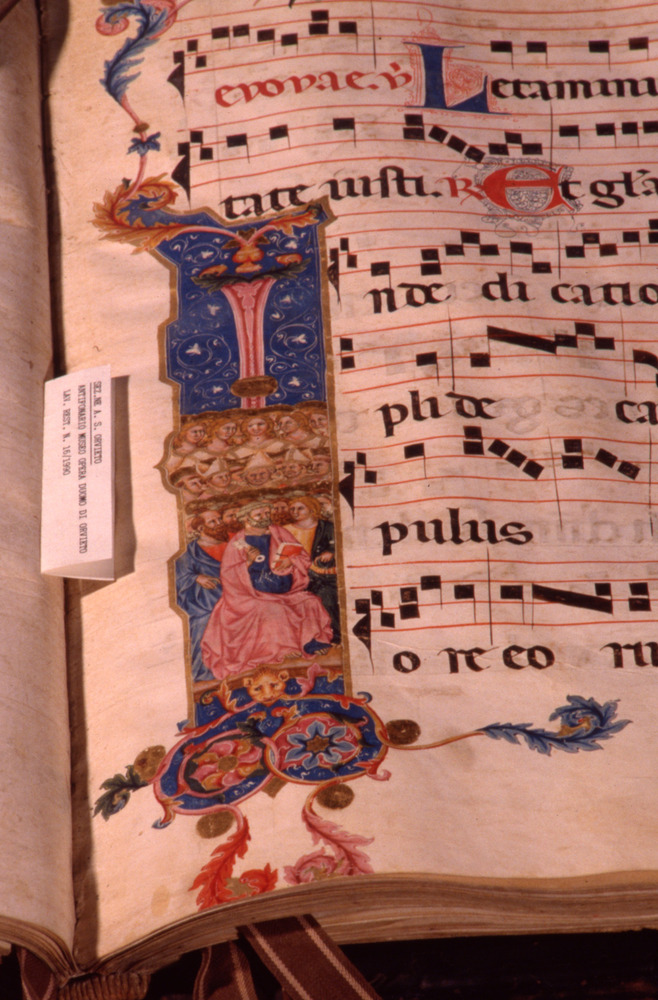 evovae. v̄ Letamini
tate iusti. R Et gl'a
Inde di catio
pli de ca
pulus
o re eo ru
SEZ.NE A. S. ORVIETO
ANTIFONARIO MUSEO OPERA DUOMO DI ORVIETO
LAV. REST. N. 16/1990